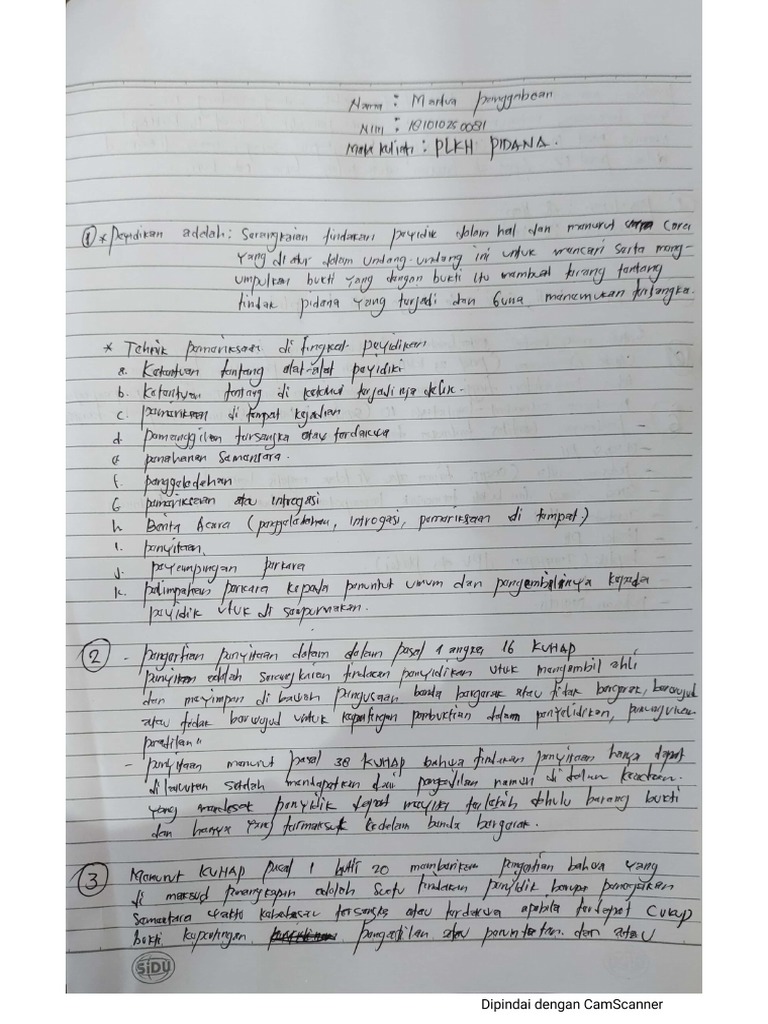 Nama : Marlva panggabean
Nim : 181010250081
Mata kuliah : PLKH PIDANA.
① * Peyidikan adalah : Serangkaian tindakan peyidik dalam hal dan menurut cara
yang di atur dalam undang-undang ini untuk mencari serta meng-
umpulkan bukti yang dengan bukti itu membuat terang tentang
tindak pidana yang terjadi dan Guna menemukan tersangka.
* Tehnik pemeriksaan di tingkat peyidikan
a. Ketentuan tentang alat-alat peyidik
b. Ketentuan tentang di ketahui terjadi nya delik.
c. pemeriksaan di tempat kejadian
d. pemanggilan tersangka atau terdakwa
e penahanan Sementara.
f. penggeledehan
G pemeriksaan atau introgasi
h Berita Acara (penggeledahan, introgasi, pemeriksaan di tempat)
i. penyitaan,
j. peyeumpingan perkara
k. pelimpahan perkara kepada penuntut umum dan pengembalinya kepada
peyidik utuk di sempurnakan.
② - pengertian penyitaan dalam dalam pasal 1 angka 16 KUHAP
penyitaan adalah serangkaian tindakan penyidikan utuk mengambil ahli
dan menyimpan di bawah pengusaan benda bergerak atau tidak bergerak, berwujud
atau tidak berwujud untuk kepentingan pembuktian dalam penyelidikan, penuntutan
peradilan"
- penyitaan menurut pasal 38 KUHAP bahwa tindakan penyitaan hanya dapat
di lakukan setelah mendapatkan dari pengadilan namun di dalam keadaan
yang mendesak penyidik dapat meyita terlebih dahulu barang bukti
dan hanya yang termaksuk kedalam benda bergerak.
③ Menurut KUHAP pasal 1 butir 20 memberikan pengertian bahwa yang
di maksud penangkapan adalah suatu tindakan penyidik berupa pengekangan
sementara waktu kebebasan tersangka atau terdakwa apabila terdapat cukup
bukti kepentingan pengadilan atau penuntutan dan atau
SiDU
Dipindai dengan CamScanner